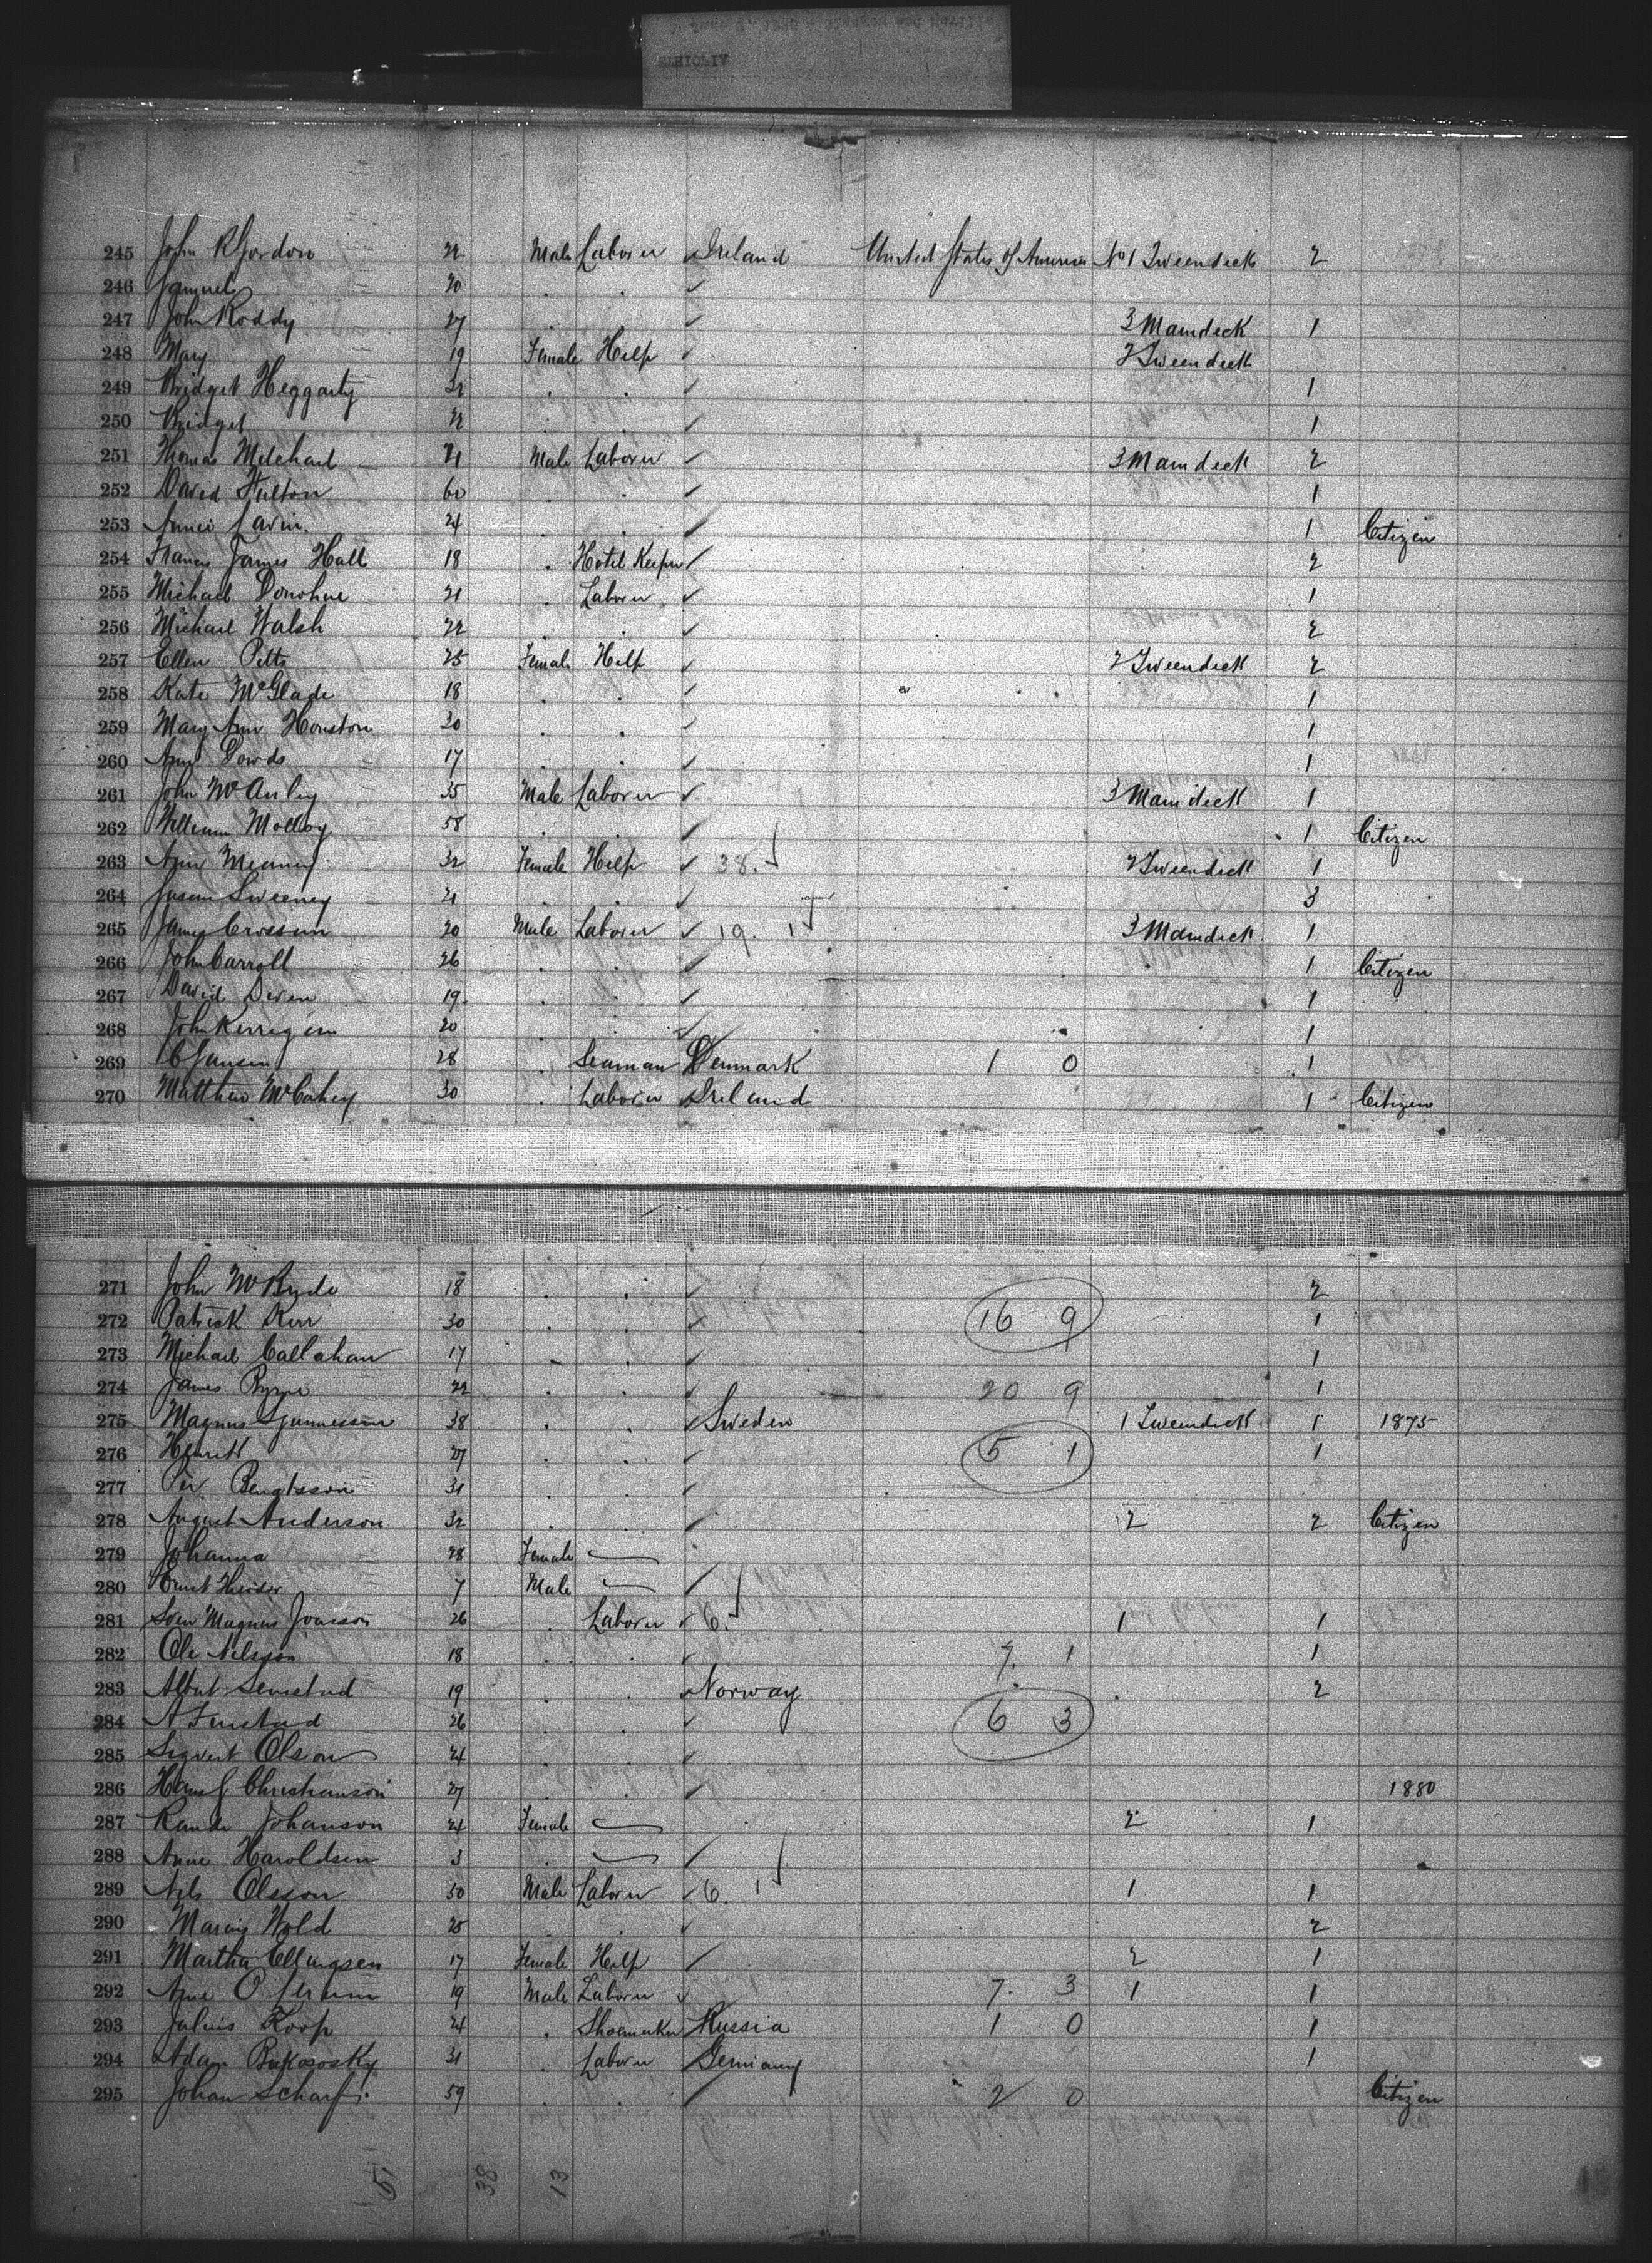 245 John R Gordon 22 Male Laborer Ireland United States of America No 1 Tweendeck 2
246 Samuel 20 . . ✓
247 John Roddy 27 . . ✓ 3 Maindeck 1
248 Mary 19 Female Help ✓ 2 Tweendeck
249 Bridget Heggarty . . ✓ 1
250 Bridget . . ✓ 1
251 Thomas Male Laborer ✓ 3 Maindeck 2
252 David Fulton 60 . . ✓ 1
253 24 . . ✓ 1 Citizen
254 Francis James Hall 18 . Hotel Keeper ✓ 2
255 Michael Donohue 21 . Laborer ✓ 1
256 Michael Walsh 22 . . ✓ 2
257 Ellen Pitts 25 Female Help ✓ 2 Tweendeck 2
258 Kate McGlade 18 . . ✓ 1
259 Mary Ann Houston 30 . . ✓ 1
260 Ann Dowds 17 . . ✓ 1
261 John McAuley 35 Male Laborer ✓ 3 Maindeck 1
262 William Molloy 58 . . ✓ 1 Citizen
263 Ann Meaney 32 Female Help ✓ 38. ✓ 2 Tweendeck 1
264 Susan Sweeney 21 . . ✓ 3
265 James Crossan 20 Male Laborer ✓ 19. 1 3 Maindeck 1
266 John Carroll 26 . . ✓ 1 Citizen
267 David Deven 19 . . ✓ 1
268 John Kerrigan 20 . . ✓ 1
269 C Jansen 28 . Seaman Denmark 1 0 1
270 Matthew McCahey 30 . Laborer Ireland 1 Citizen
271 John McBryde 18 . . ✓ 2
272 Patrick Kerr 30 . . ✓ 16 9 1
273 Michael Callahan 17 . . ✓ 1
274 James Byrne 22 . . ✓ 20 9 1
275 Magnus 38 . . Sweden 1 Tweendeck 1 1875
276 27 . . ✓ 5 1 1
277 Per Bengtsson 31 . . ✓
278 August Anderson 32 . . ✓ 2 2 Citizen
279 Johanna 28 Female
280 Ernst 7 Male ✓
281 Sven Magnus Jonsson 26 . Laborer ✓ 6. ✓ 1 1
282 Ole Nilsson 18 . . ✓ 7. 1 1
283 Albert 19 . . Norway 2
284 26 . . ✓ 6 3
285 Sigvert Olson 24 . . ✓
286 Hans J Christianson 27 . . ✓ 1880
287 Johanson 24 Female 2 1
288 Anne Haroldsen 3 . ✓
289 Nils Olsson 50 Male Laborer ✓ 6. 1 1 1
290 Wold 25 . . ✓ 2
291 Martha Ellingsen 17 Female Help ✓ 2 1
292 19 Male Laborer ✓ 7. 3 1 1
293 Julius Koop 24 . Shoemaker Russia 1 0 1
294 Adam 31 . Laborer Germany 1
295 Johan Scharf 59 . . ✓ 2 0 Citizen
38 13